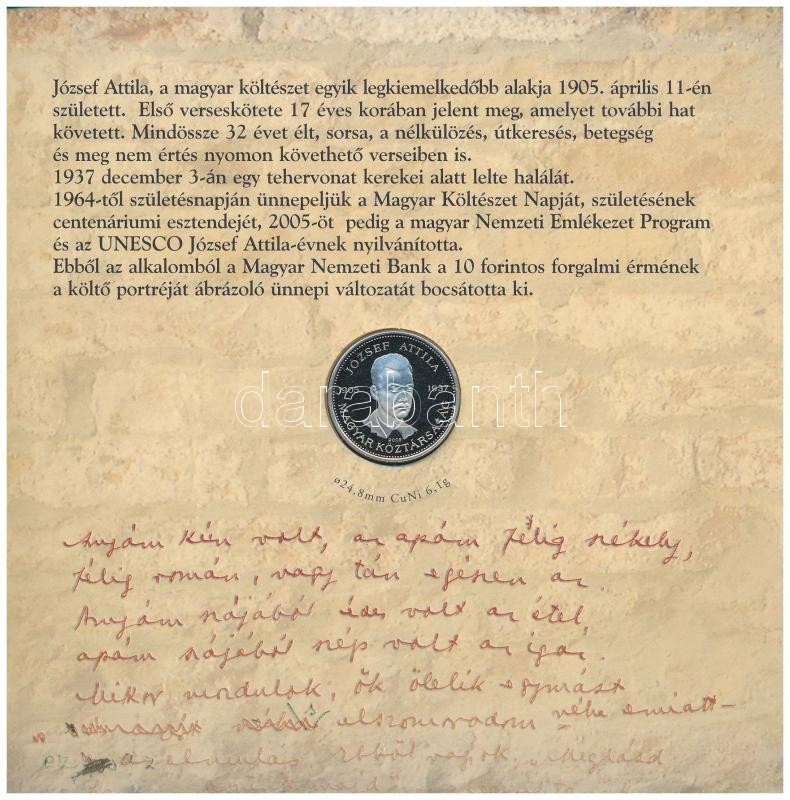 József Attila, a magyar költészet egyik legkiemelkedőbb alakja 1905. április 11-én
született. Első verseskötete 17 éves korában jelent meg, amelyet további hat
követett. Mindössze 32 évet élt, sorsa, a nélkülözés, útkeresés, betegség
és meg nem értés nyomon követhető verseiben is.
1937 december 3-án egy tehervonat kerekei alatt lelte halálát.
1964-től születésnapján ünnepeljük a Magyar Költészet Napját, születésének
centenáriumi esztendejét, 2005-öt pedig a magyar Nemzeti Emlékezet Program
és az UNESCO József Attila-évnek nyilvánította.
Ebből az alkalomból a Magyar Nemzeti Bank a 10 forintos forgalmi érmének
a költő portréját ábrázoló ünnepi változatát bocsátotta ki.
JÓZSEF ATTILA
1905 1937
darabanth
2005
MAGYAR KÖZTÁRSASÁG
ø24,8mm CuNi 6,1g
Anyám kún volt, az apám félig székely,
félig román, vagy tán egészen az.
Anyám szájából édes volt az étel,
apám szájából szép volt az igaz.
Mikor mozdulok, ők ölelik egymást
elszomorodom néha emiatt–
ez az elmulás. Ebből vagyok. „Meglásd